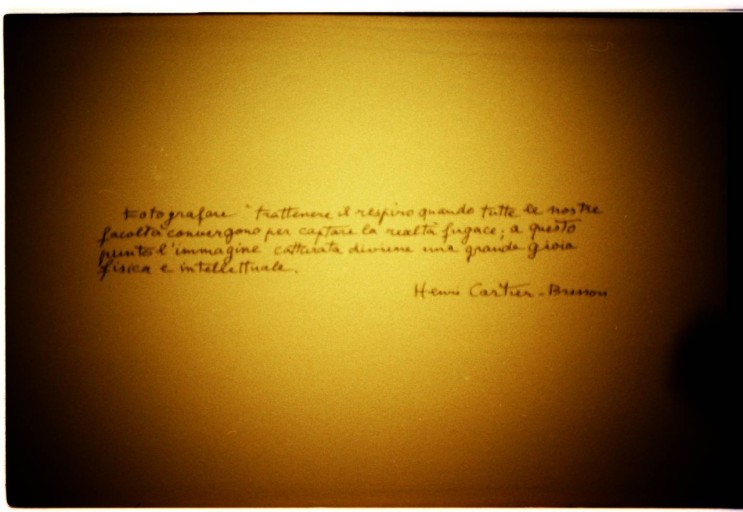 Fotografare è trattenere il respiro quando tutte le nostre
facoltà convergono per captare la realtà fugace; a questo
punto l'immagine catturata diviene una grande gioia
fisica e intellettuale.
Henri Cartier-Bresson